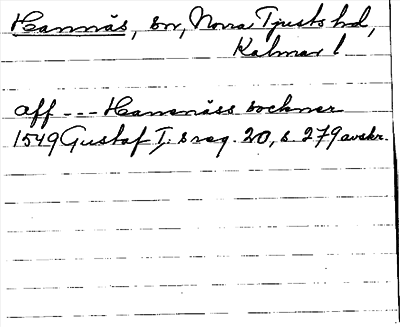 Hannäs, sn, Norra Tjusts hd,
Kalmar l
aff --- Hanenäss sochner
1549 Gustaf I:s reg. 20, s. 279 avskr.